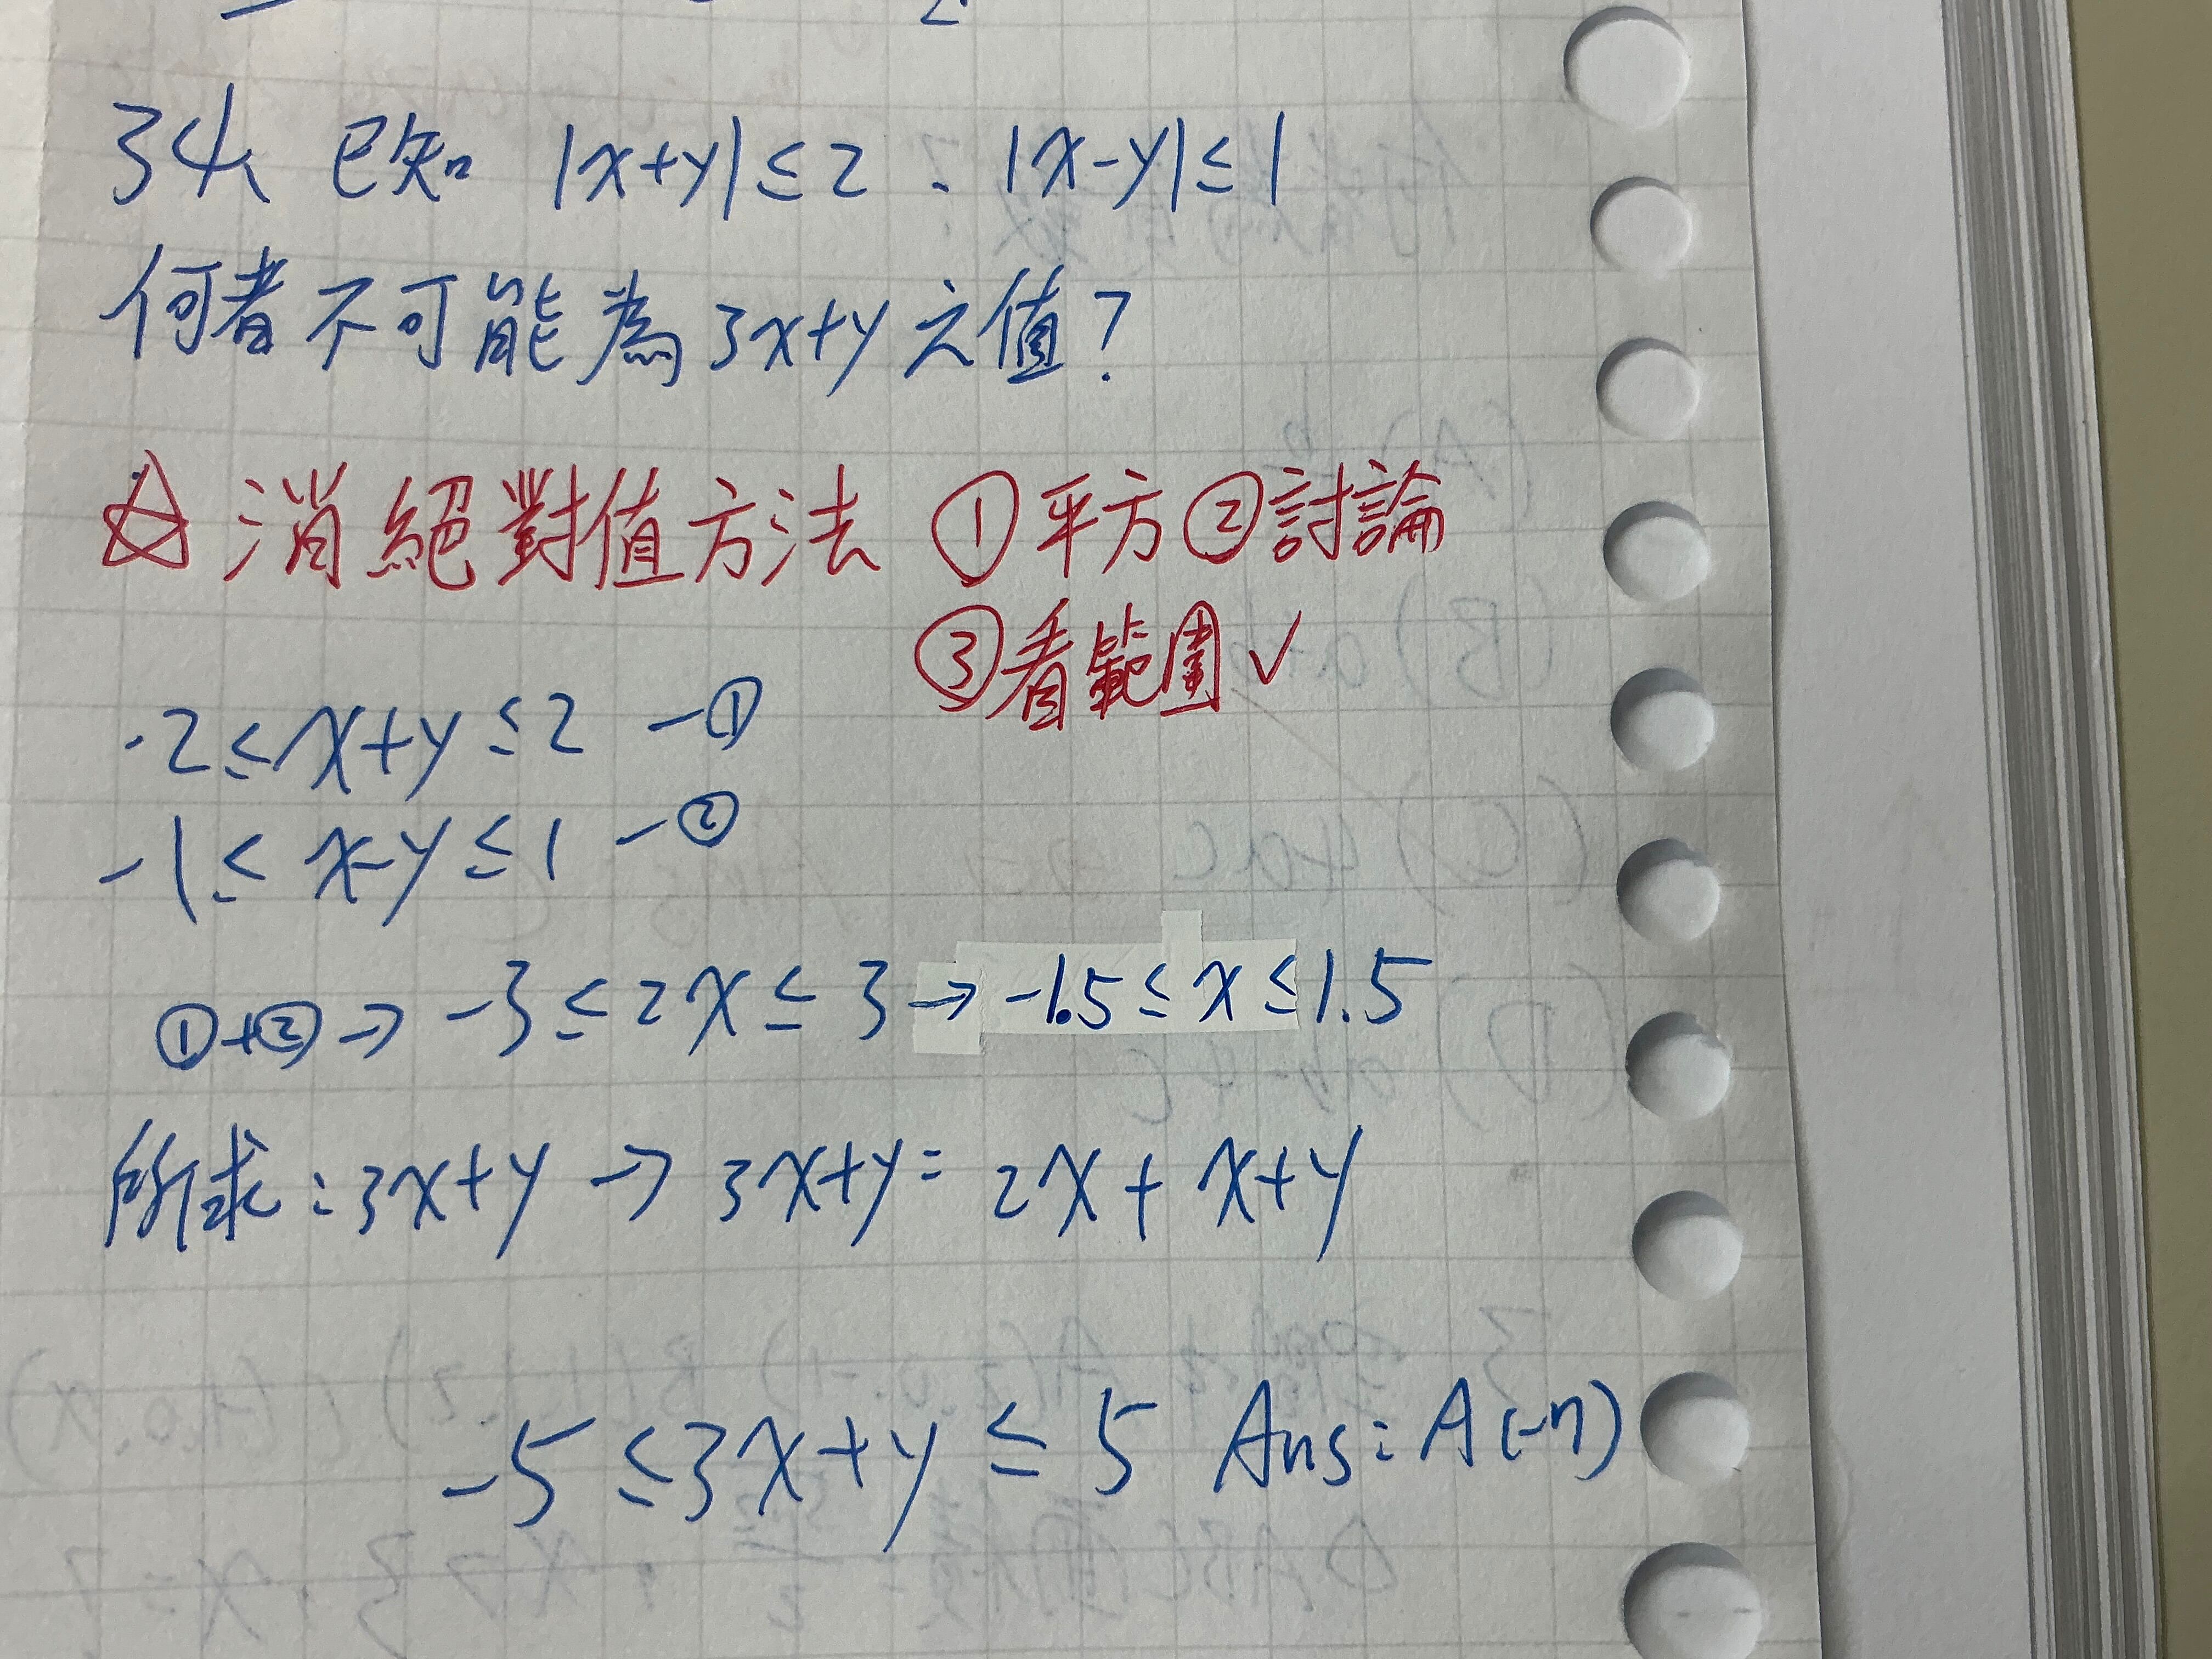 34、已知 |x+y|≤2、|x-y|≤1
何者不可能為3x+y之值?
☆消絕對值方法 ①平方②討論
③看範圍✓
-2≤x+y≤2 -①
-1≤x-y≤1 -②
①+②→ -3≤2x≤3→-1.5≤x≤1.5
所求:3x+y→3x+y=2x+x+y
-5≤3x+y≤5 Ans:A(-7)